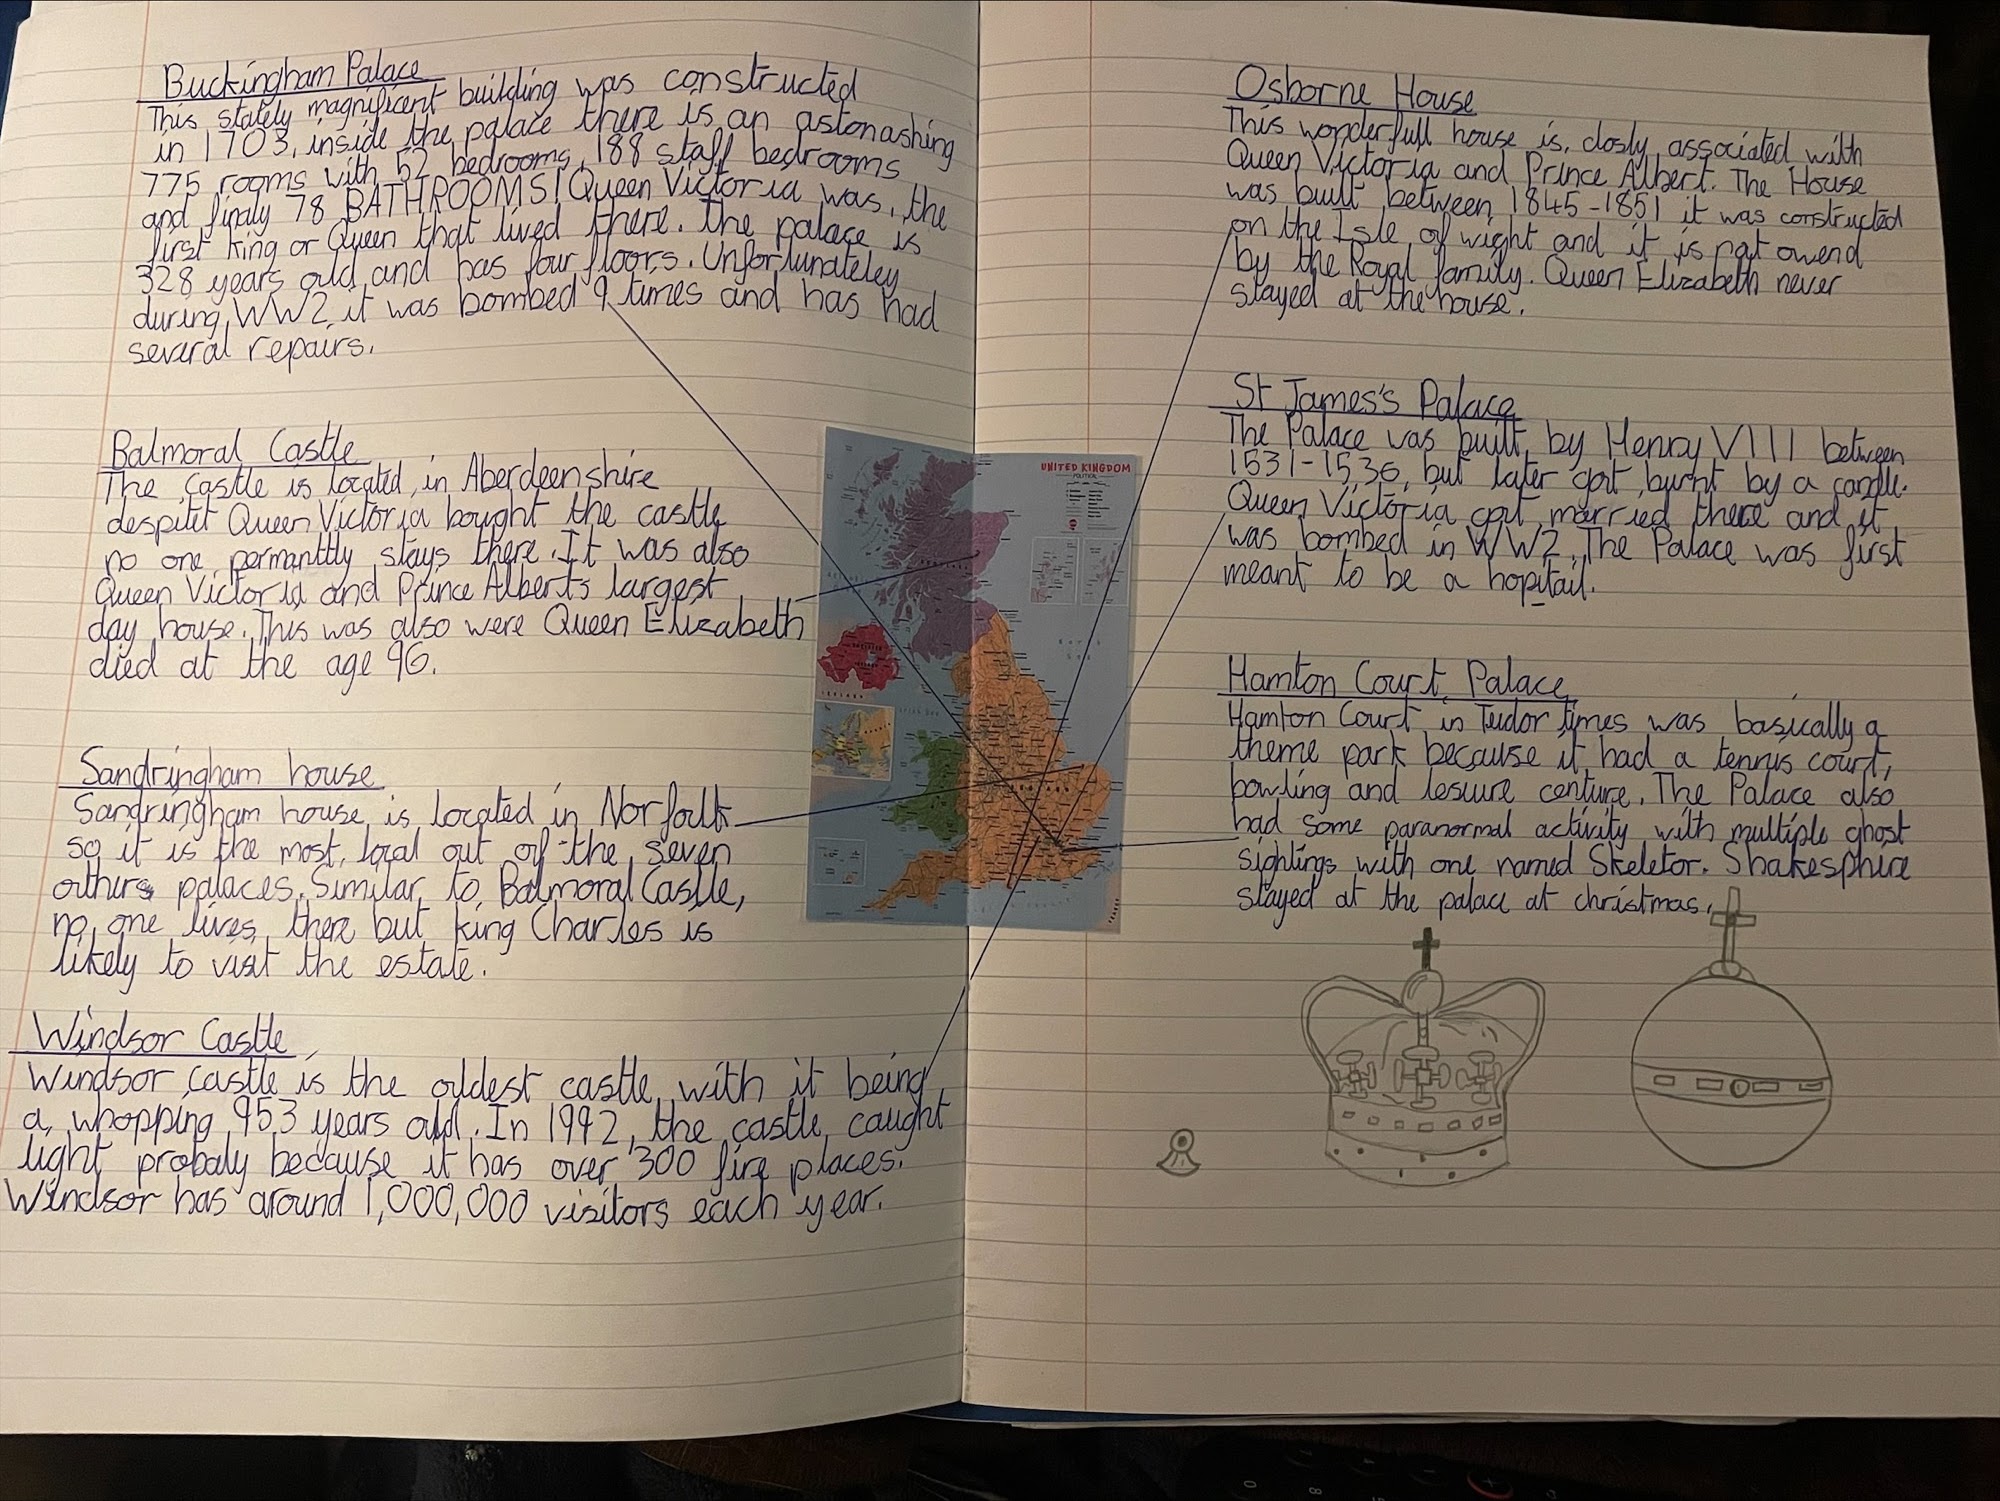 Buckingham Palace
This stately magnificent building was constructed
in 1703, inside the palace there is an astonashing
775 rooms with 52 bedrooms, 188 staff bedrooms
and finaly 78 BATHROOMS! Queen Victoria was, the
first king or Queen that lived there. The palace is
328 years old and has four floors. Unfortunateley
during WW2 it was bombed 9 times and has had
several repairs.
Balmoral Castle
The castle is located in Aberdeenshire
despitet Queen Victoria bought the castle
no one permanttly stays there. It was also
Queen Victoria and Prince Albert's largest
day house. This was also were Queen Elizabeth
died at the age 96.
Sandringham house
Sandringham house is located in Norfolk
so it is the most local out of the seven
others palaces. Similar to Balmoral Castle,
no one lives there but king Charles is
likely to visit the estate.
Windsor Castle
Windsor castle is the oldest castle with it being
a whopping 953 years old. In 1992, the castle caught
light probaly because it has over 300 fire places.
Windsor has around 1,000,000 visitors each year.
UNITED KINGDOM
POLITICAL
Osborne House
This wonderfull house is closly associated with
Queen Victoria and Prince Albert. The House
was built between 1845-1851 it was constructed
on the Isle of wight and it is not owend
by the Royal family. Queen Elizabeth never
stayed at the house.
St James's Palace
The Palace was built by Henry VIII between
1531-1536, but later got burnt by a candle.
Queen Victoria got married there and it
was bombed in WW2. The Palace was first
meant to be a hopitail.
Hamton Court Palace
Hamton Court in Tudor times was basically a
theme park because it had a tennis court,
bowling and lesiure centure. The Palace also
had some paranormal activity with multiple ghost
sightings with one named Skeletor. Shakesphire
stayed at the palace at christmas.